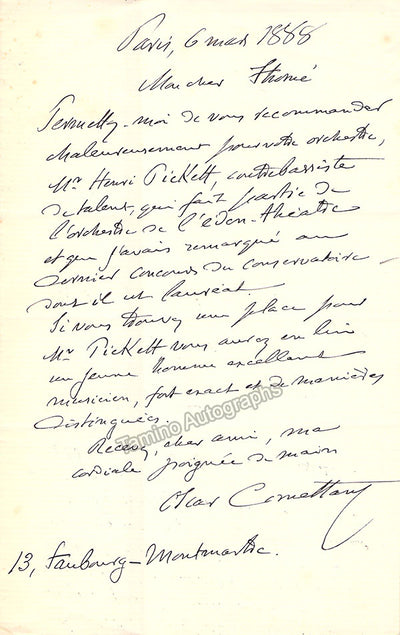 Paris, 6 mars 1888
Mon cher Thomé
Permettez-moi de vous recommander
chaleureusement pour votre orchestre,
Mr Henri Pickett, contrebassiste
de talent, qui fait partie de
l'orchestre de l'Eden-théatre
et que j'avais remarqué au
dernier concours du conservatoire
dont il est lauréat.
Si vous trouvez une place pour
Mr Pickett vous aurez en lui
un jeune homme excellent
musicien, fort exact et de manières
distinguées.
Tamino Autographs
Recevez, cher ami, ma
cordiale poignée de main
Oscar Comettant
13, Faubourg-Montmartre.